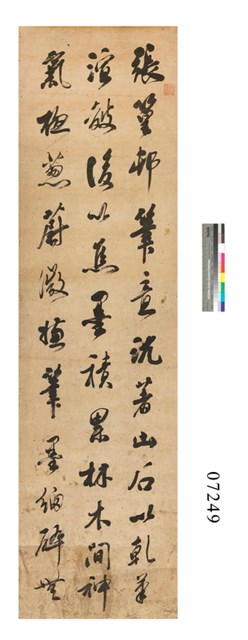 張篁邨筆意沈著山石以乾筆
渲皴後以焦墨積累林木間神
氣極葱蔚微嫌筆墨細碎無
07249